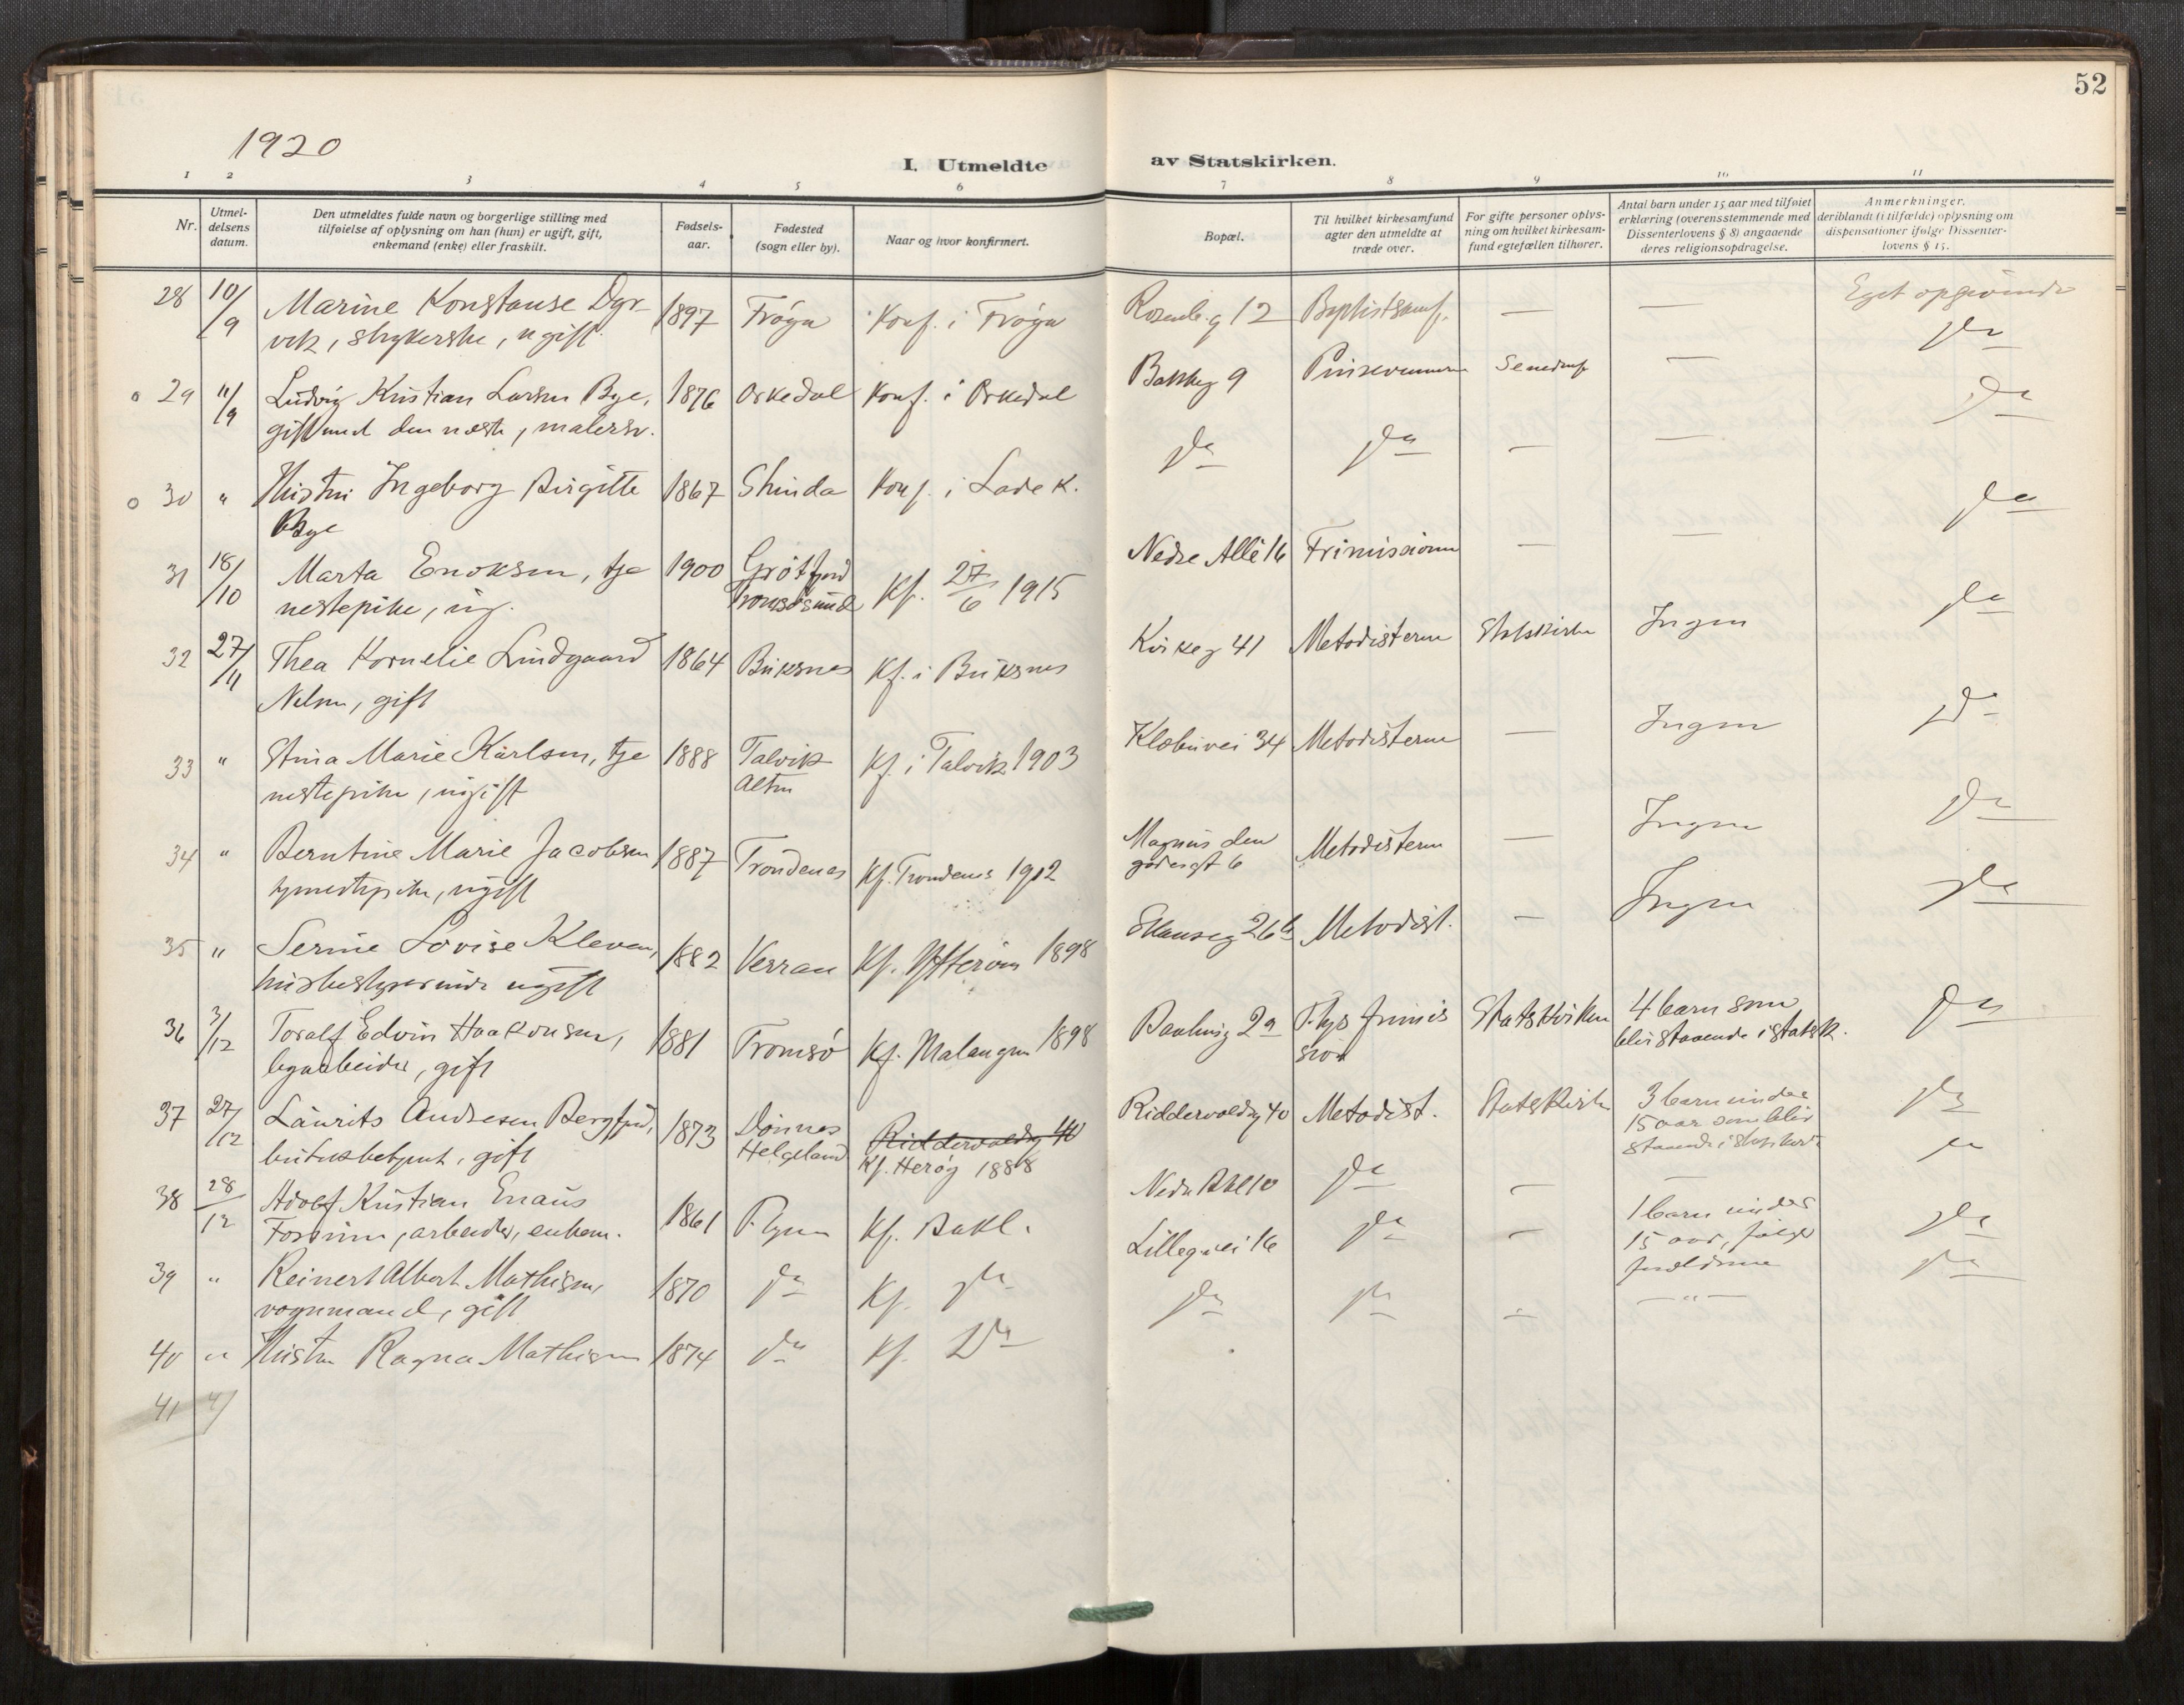 52
1920
I. Utmeldte av Statskirken.
1 2 3 4 5 6 7 8 9 10 11
Nr.
Utmel-
delsens
datum.
Den utmeldtes fulde navn og borgerlige stilling med
tilføielse af oplysning om han (hun) er ugift, gift,
enkemand (enke) eller fraskilt.
Fødsels-
aar.
Fødested
(sogn eller by).
Naar og hvor konfirmert.
Bopæl.
Til hvilket kirkesamfund
agter den utmeldte at
træde over.
For gifte personer oplys-
ning om hvilket kirkesam-
fund egtefællen tilhører.
Antal barn under 15 aar med tilføiet
erklæring (overensstemmende med
Dissenterlovens § 8) angaaende
deres religionsopdragelse.
Anmerkninger,
deriblandt (i tilfælde) oplysning om
dispensationer ifølge Dissenter-
lovens § 15.
28 10/9 Marine Konstanse Dyr- 1897 Frøya Konf. i Frøya Rosenb.g 12 Baptistsamf. — — Eget opgivende
vik, strykerske, ugift
29 11/9 Ludvig Kristian Larsen Bye, 1876 Orkedal Konf. i Orkedal Bakkeg 9 Pinsevennerne — Do
gift med den næste, malersv.
30 " Hustru Ingeborg Birgitte 1867 Strinda Konf. i Lade K. Do Do — — Do
Bye
31 18/10 Marta Enoksen, tje 1900 Grøtfjord Kf. 27/6 1915 Nedre Allé 16 Frimissionen — — Do
nestepike, ug. Tromsøsund
32 27/11 Thea Kornelie Lindgaard 1864 Buksnes Kf. i Buksnes Kirkeg 41 Metodisterne Statskirken Ingen Do
Nilsen, gift
33 " Stina Marie Karlsen, tje 1888 Talvik Kf. i Talvik 1903 Klæbuvei 34 Metodisterne — Ingen Do
nestepike, ugift Alten
34 " Berntine Marie Jacobsen 1887 Trondenes Kf. Trondenes 1902 Magnus den Metodisterne — Ingen Do
tjenestepike, ugift godesgt 6
35 " Serine Lovise Kleven, 1882 Verran Kf. Ytterøen 1898 Skanseg 26b Metodist. — Ingen Do
husbestyrerinde ugift
36 3/12 Toralf Edvin Haakonsen, 1881 Tromsø Kf. Malangen 1898 2a Statskirken 4 barn som Do
byarbeider, gift blir staaende i statsk.
37 27/12 Laurits Andresen Bergfjord, 1873 Dønnes Riddervoldsg 40 Riddervoldsg 40 Metodist. Statskirk 3 barn under Do
butikbetjent, gift Helgeland Kf. Herøy 1888 15 aar som blir
staaende i statskirk
38 28/12 Adolf Kristian Enaus 1861 Kf. Bakl. Nedre Allé 10 Do — — Do
arbeider, enkem.
39 " Reinert Albert Mathisen, 1870 Do Kf. Do Lillegvei 16 Do — 1 barn under Do
vognmand, gift 15 aar, følger
forældrene
40 " Hustru Ragna Mathisen 1874 Do Kf. Do Do Do — — " — Do
41 4/